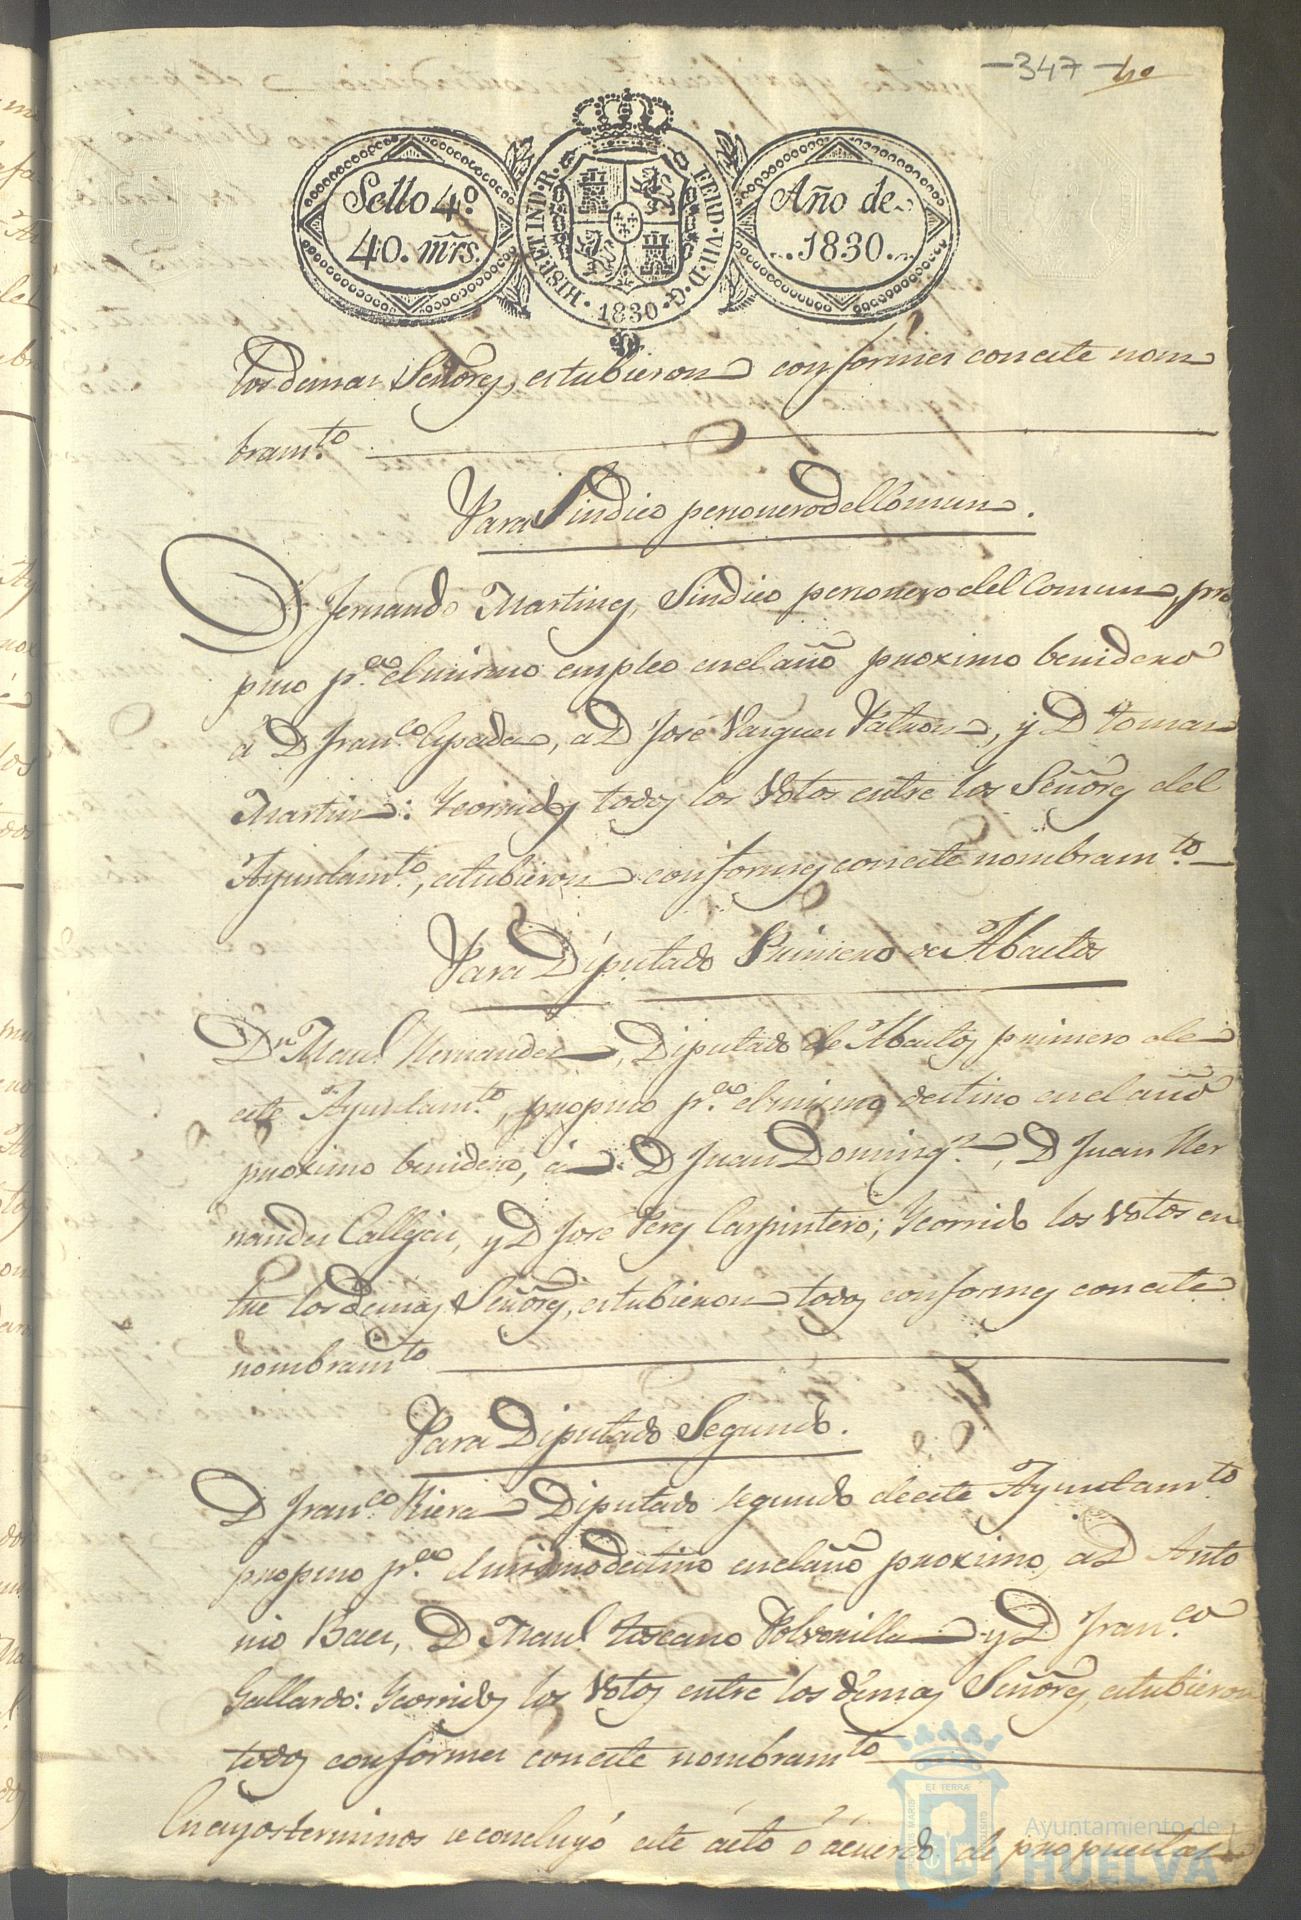 -347- 40
Sello 4º.
40. mrs.
HISP. ET IND. R.
FERD. VII. D. G.
1830
Año de
1830
los demas Señores, estubieron conformes con este nom
bramto.
Para Sindico personero del Comun.
D. Fernando Martines, Sindico personero del Comun, pro
puso pa. el mismo empleo en el año proximo benidero
a D Franco. Cepeda, a D José Vargues, y D Tomas
Martin: Y corridos todos los Votos entre los Señores del
Ayuntamto., estubieron conformes con este nombramto.
Para Diputado Primero de Abastos
Dn. Manl. Hernandes, Diputado de Abastos primero de
este Ayuntamto., propuso pa. el mismo destino en el año
proximo benidero, á D Juan Domingz., D Juan Her
nandes Calleja, y D José Peres Carpintero; Y corrido los Votos en
tre los demas Señores, estubieron todos conformes con este
nombramto
Para Diputado Segundo.
D Franco. Riera Diputado segundo de este Ayuntamto
propuso pa. el mismo destino en el año proximo, a D Anto
nio Baes, D Manl. Toscano Polvorilla y D Franco.
Gallardo: Y corridos los Votos entre los demas Señores, estubieron
todos conformes con este nombramto
En cuyos terminos se concluyó este acto ó acuerdo de propuesta
Ayuntamiento de
HUELVA